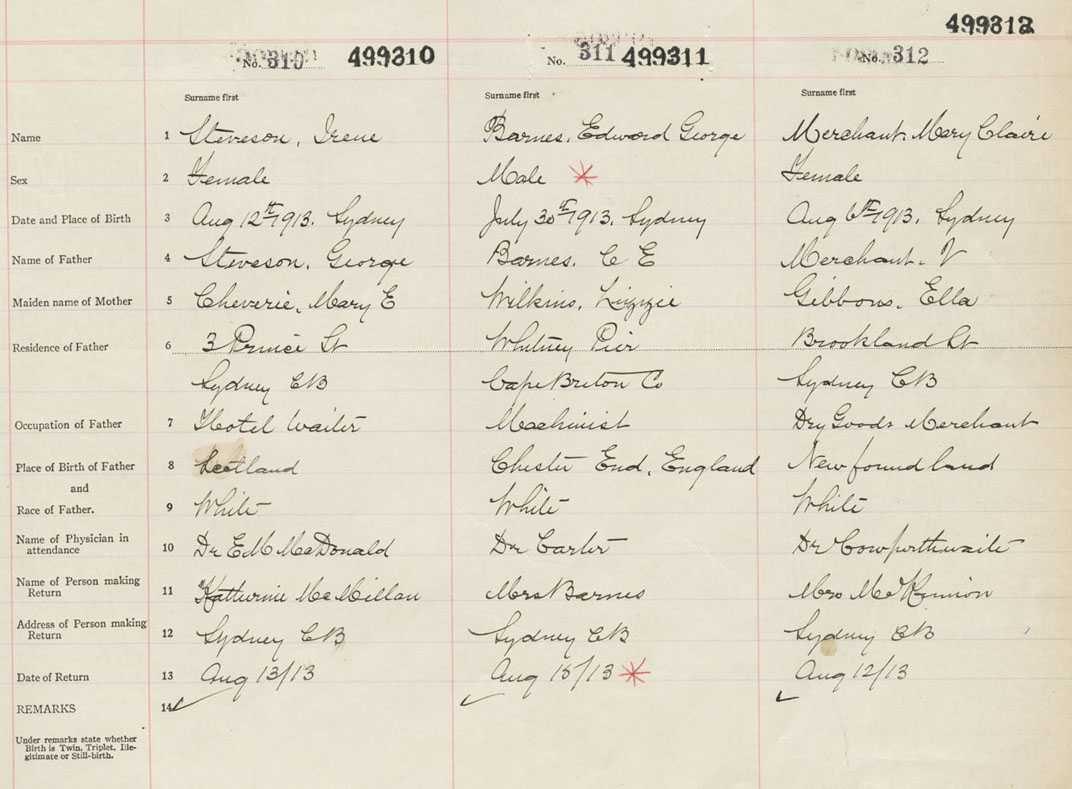 499312
No. 310 499310 No. 311 499311 No. 312
Surname first Surname first Surname first
Name 1 Steveson, Irene Barnes, Edward George Merchant, Mary Claire
Sex 2 Female Male Female
Date and Place of Birth 3 Aug 12th 1913. Sydney July 30th 1913. Sydney Aug 6th 1913. Sydney
Name of Father 4 Steveson, George Barnes, C E Merchant, V
Maiden name of Mother 5 Cheverie, Mary E Wilkins, Lizzie Gibbons, Ella
Residence of Father 6 3 Prince St Whitney Pier Brookland St
Sydney CB Cape Breton Co Sydney CB
Occupation of Father 7 Hotel Waiter Machinist Dry Goods Merchant
Place of Birth of Father 8 Scotland Chester End, England Newfoundland
and
Race of Father. 9 White White White
Name of Physician in
attendance 10 Dr E M MacDonald Dr Carter Dr Cowperthwaite
Name of Person making
Return 11 Katherine McMillan Mrs Barnes Mrs McKinnon
Address of Person making
Return 12 Sydney CB Sydney CB Sydney CB
Date of Return 13 Aug 13/13 Aug 15/13 Aug 12/13
REMARKS 14
Under remarks state whether
Birth is Twin, Triplet, Ille-
gitimate or Still-birth.